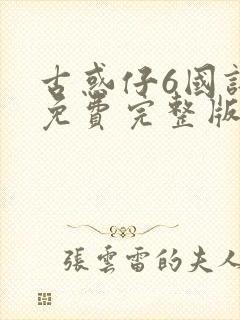 古惑仔6國
免費完整版
張雲雷的夫人